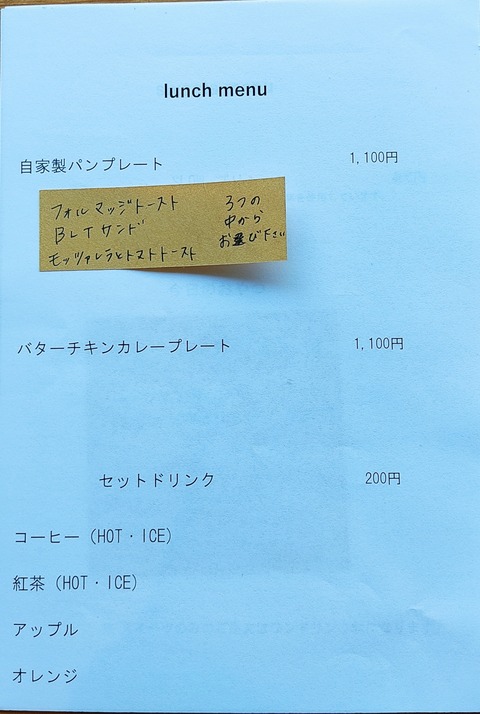 lunch menu
自家製パンプレート 1,100円
フォルマッジトースト
BLTサンド
モッツァレラとトマトトースト
3つの
中から
お選び下さい
バターチキンカレープレート 1,100円
セットドリンク 200円
コーヒー（HOT・ICE）
紅茶（HOT・ICE）
アップル
オレンジ